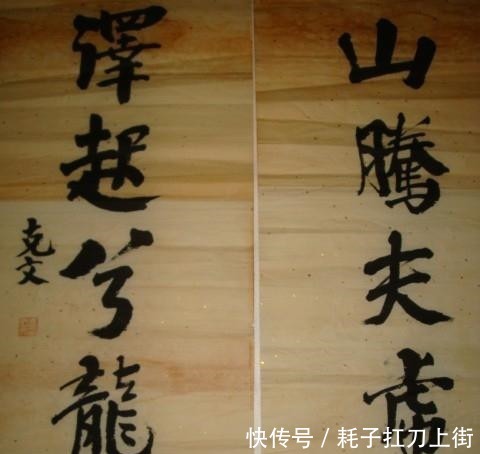 山騰夫虎
澤起兮龍
克文
快传号 / 耗子扛刀上街